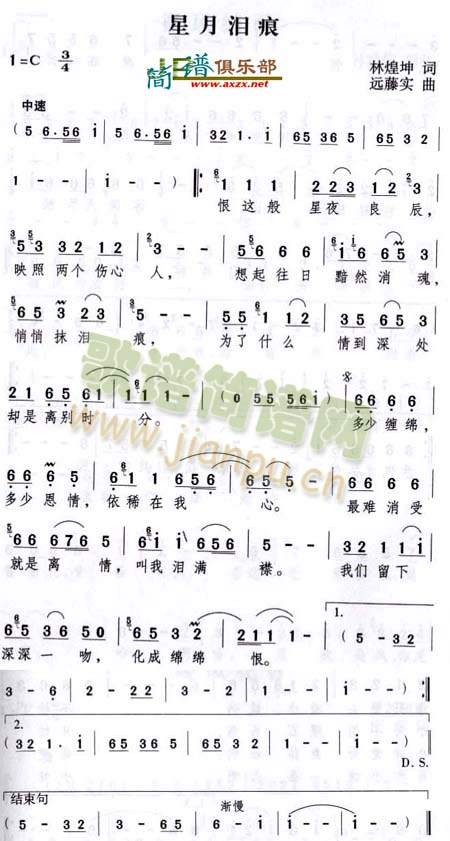 星月泪痕
1=C 3/4
简谱俱乐部
www.axzx.net
林煌坤 词
远藤实 曲
中速
(5 6·56 i | 5 6·56 i | 32 1· i | 65 36 5 | 65 3 2 |
1 - - | i - - ) ‖: 1 1 1 | 2 2 3 1 2 3 |
恨 这 般 星 夜 良 辰，
5 3 3 2 1 2 | 3 - - | 5 6 6 6 | 1 6 65 3 |
映照两个伤心 人， 想起往日 黯然消魂，
65 3 23 | 5 - - | 5 5 12 1 | 35 65 3 |
悄悄抹泪 痕， 为了什么 情到深处
2 1 6 5 6 1 | 1 1 1 - | (0 55 56i) | 66 6 6 |
却是离别时 分。 多少缠绵，
66 6 5 | 6 1 1 656 | 65 5 - | 6 6 6 6 |
多少恩情， 依稀在我 心。 最难消受
66 676 5 | 6i i 656 | 5 - - | 32 1 1 i |
就是离 情，叫我泪满 襟。 我们留下
65 36 50 | 53 65 32 | 211 1 - | (5 - 32 |
深深一吻， 化成绵绵 恨。
1.
3 - 6 | 2 - 22 | 3 - 5 | 1 - - | i - - ) :‖
2.
(32 1· i | 65 36 5 | 65 3 2 | 1 - - | i - - ) ‖
D.S.
结束句
渐慢
(5 - 32 | 3 - 65 | 6 - 6 | i - - | i - - ) ‖
歌谱简谱网
www.jianpu.cn